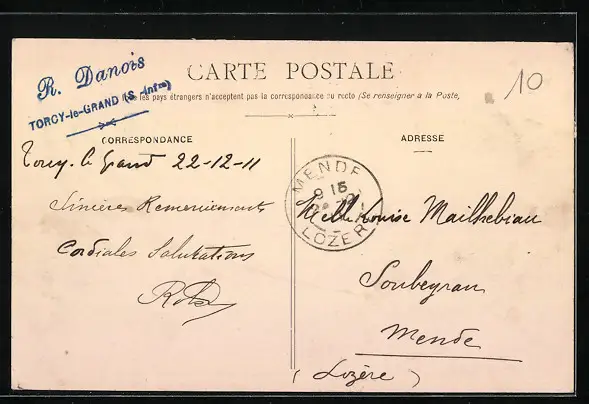 R. Danois
TORCY-le-GRAND (S.-Infre)
CARTE POSTALE
les pays étrangers n'acceptent pas la correspondance au recto (Se renseigner à la Poste)
10
CORRESPONDANCE
ADRESSE
Torcy-le Grand 22-12-11
Sincères Remerciements
Cordiales Salutations
MENDE
9 15
LOZERE
Melle Louise Mailhebiau
Soubeyran
Mende
(Lozère)